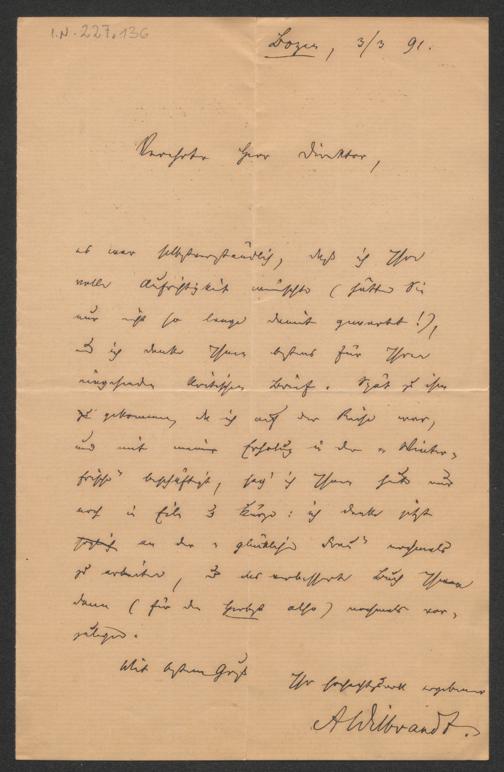 I.N. 227.136
Bozen, 3/3 91.
Verehrter Herr Direktor,
es war selbstverständlich, daß ich Ihre
volle Aufrichtigkeit wünschte (hätten Sie
nur nicht so lange damit gewartet!),
und ich danke Ihnen bestens für Ihren
eingehenden kritischen Brief. Spät zu ihm
gekommen, da ich auf der Reise war,
und mit meiner Erholung in der „Winter-
frische" beschäftigt, sag' ich Ihnen heute nur
noch in Eile u. Kürze: ich denke jetzt
an der „glücklichen Frau" nochmals
zu arbeiten, u. das verbesserte Buch Ihnen
dann (für den Herbst also) nochmals vor-
zulegen.
Mit bestem Gruß
Ihr hochachtungsvoll ergebener
AWilbrandt.